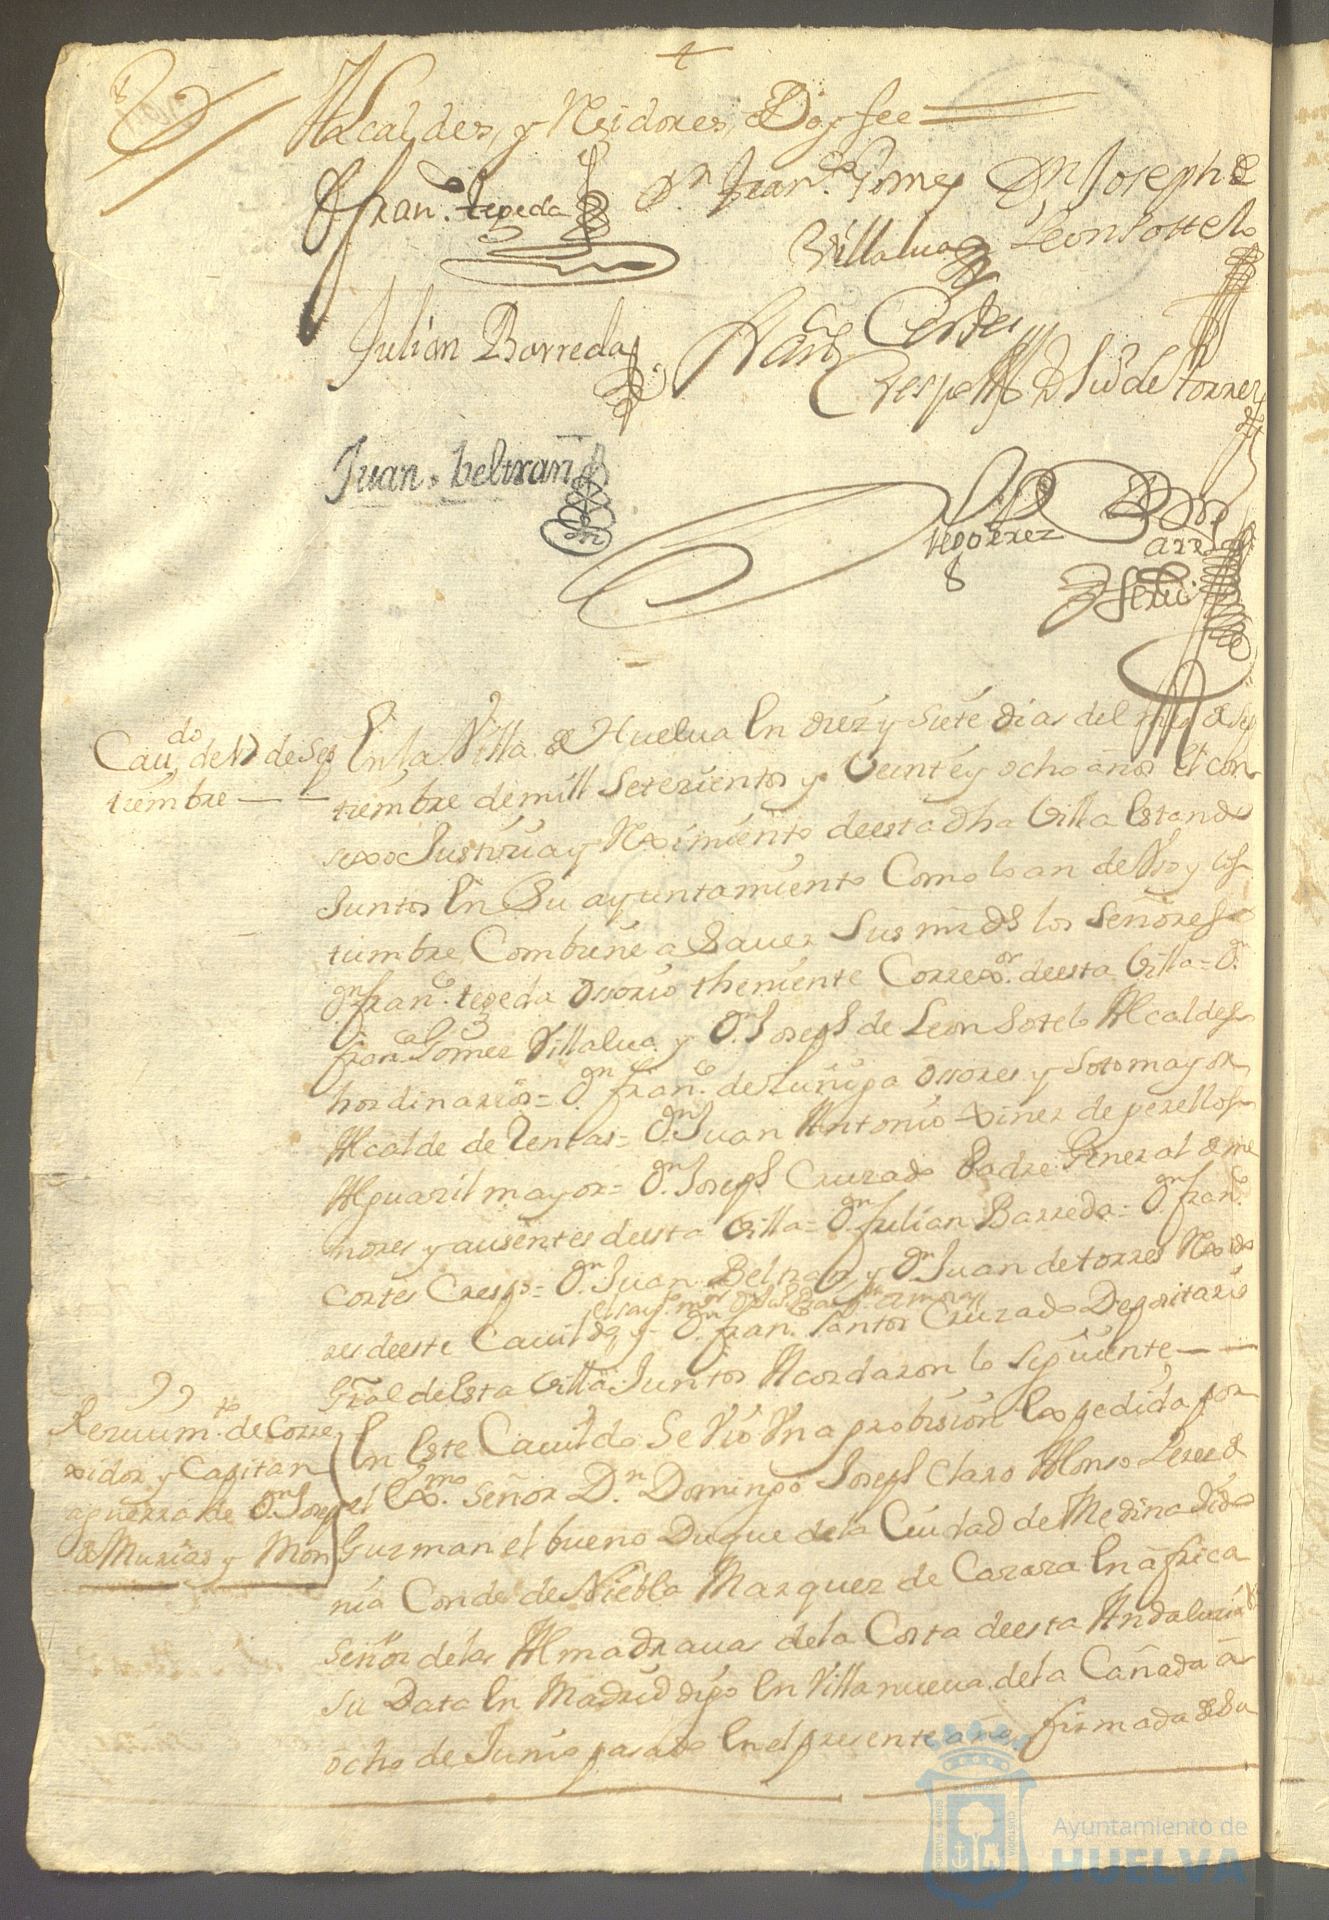 Alcaldes, y Rejidores, Doy fee
fran.co tegeda
D.n Fran.co Gomez
Villalua
D.n Joseph de
Leon Sottelo
Julian Barreda
Fran.co Cortes
Crespo
D Ju.o de torres
Juan beltran
Cau.do de 17 de Sep
tiembre
En la Villa de Huelua En diez y Siete dias del mes de Sep
tiembre de mill Setezientos y Veinte y ocho años el con
sexo Justizia y Reximiento deesta dha Villa Estando
Juntos En Su ayuntamiento Como lo an de Vso y cos
tumbre Combiene a Sauer Sus mrds los Señores
Dn fran.co tegeda Ossorio theniente Correx.or deesta Villa = D.n
fran.co Gomez Villalua y D.n Joseph de Leon Sotelo Alcaldes
hordinarios = D.n fran.co de Zuñiga Ossores y Sotomayor
Alcalde de Rentas = D.n Juan Antonio Xinez de perellos
Alguazil mayor = D.n Joseph Cruzado Padre General de me
nores y ausentes deesta Villa = D.n Julian Barreda = D.n fran.co
Cortes Crespo = D.n Juan Beltran y D.n Juan de torres Rexido
res deeste Cauildo y D.n fran.co Santos Cruzado Depositario
Gral de Esta Villa Juntos Acordaron lo Siguiente
Reciuim.to de Corre
xidor y Capitan
aguerra de D.n Joseph
de Murias y Mon
En Este Cauildo Se Vio Vna probision Expedida por
el Ex.mo Señor D.n Domingo Joseph Claro Alonso Perez de
Guzman el bueno Duque de la Ciudad de Medina Sido
nia Conde de Niebla Marquez de Cazaza En africa
Señor de las Almadrauas de la Costa deesta Andaluzia
Su Data En Madrid digo En Villanueua de la Cañada a
ocho de Junio pasado En el presente año firmada de Su
Ayuntamiento de
HUELVA